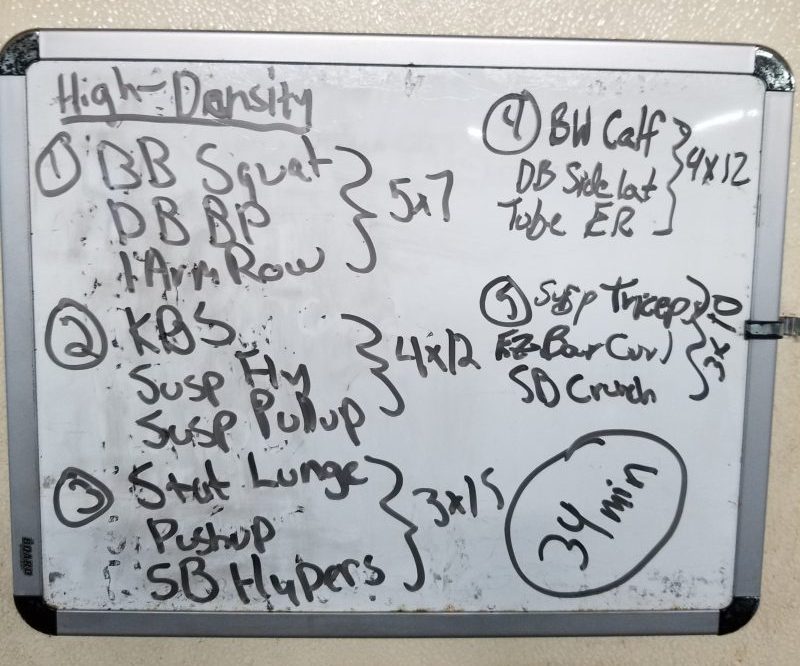 High-Density
① BB Squat
DB BP
1 Arm Row
5x7
② KBS
Susp Fly
Susp Pullup
4x12
③ Stat Lunge
Pushup
SB Hypers
3x15
④ BW Calf
DB Side Lat
Tube ER
4x12
⑤ Susp Tricep
EZ-Bar Curl
SB Crunch
3x10
34 min
BOARD